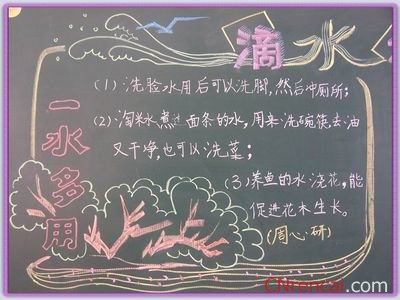 滴水
一水多用
(1)洗脸水用后可以洗脚,然后冲厕所;
(2)淘米水煮过面条的水,用来洗碗筷,去油
又干净,也可以洗菜;
(3)养鱼的水浇花,能
促进花木生长。
(周心研)
CNrencai.com